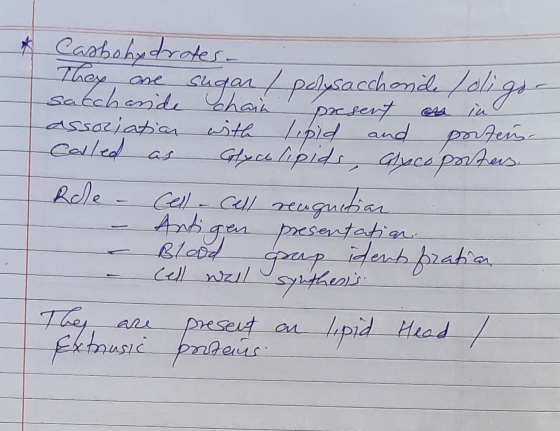 * Carbohydrates -
They are sugar / polysaccharide / oligo-
saccharide chain present in
association with lipid and protein.
Called as Glycolipids, Glycoproteins.
Role - Cell - Cell recognition
- Antigen presentation.
- Blood group identification
- Cell wall synthesis.
They are present on lipid Head /
Extrinsic proteins.